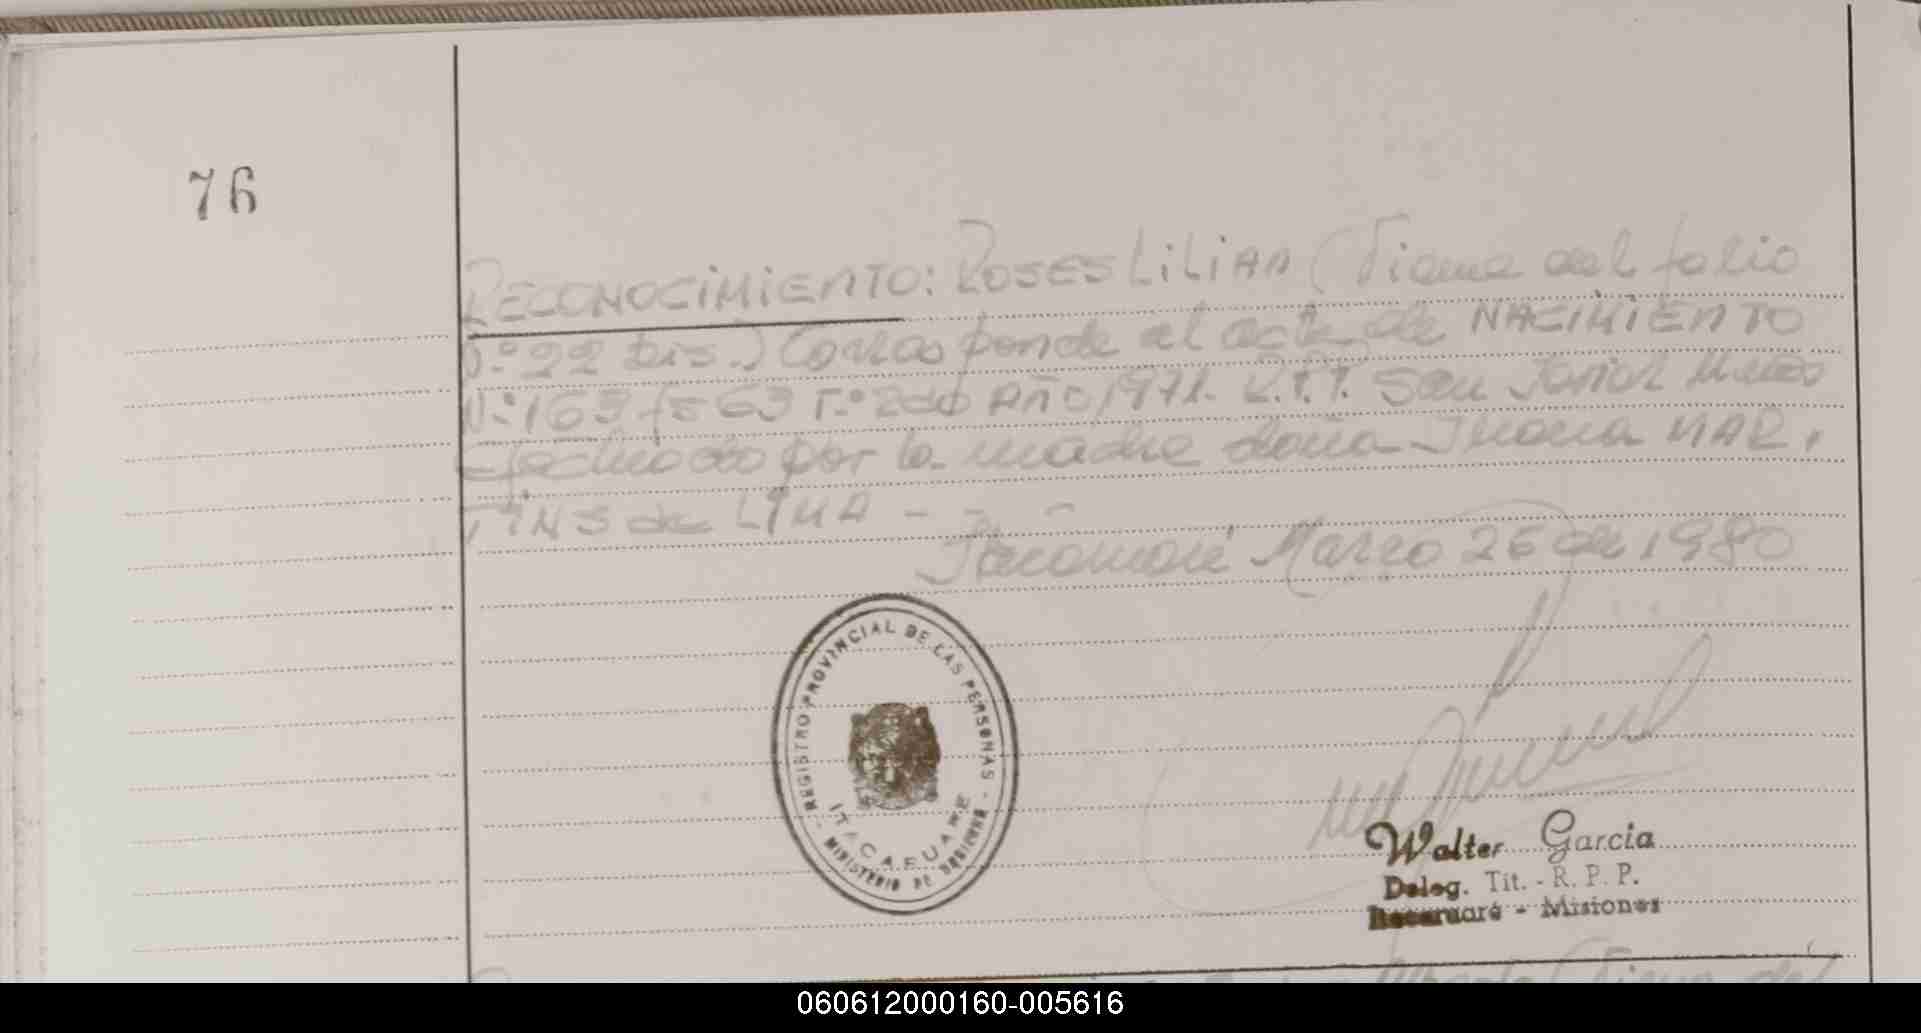 76
RECONOCIMIENTO: ROSES LiLiAn (Viene del folio
N.º 22 bis.) Corresponde al acta de NACIMIENTO
N.º 163 fs 63 T.º 2do Año 1971. San Javier
efectuado por la madre doña Juana MAR,
TINS de LIMA - - -
Itacaruaré Marzo 26 de 1980
REGISTRO PROVINCIAL DE LAS PERSONAS -
ITACARUARE
MINISTERIO DE GOBIERNO
Walter Garcia
Deleg. Tit. - R. P. P.
Itacaruaré - Misiones
Alberto (Viene del
060612000160-005616